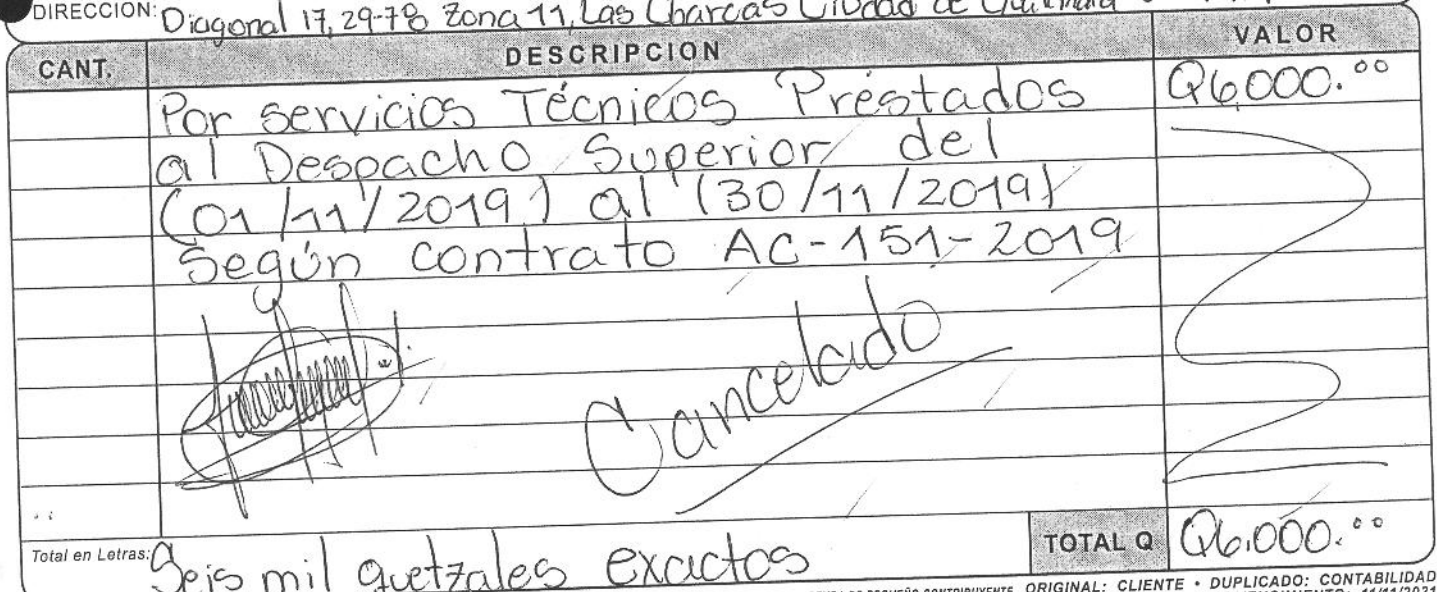 DIRECCION: Diagonal 17, 29-78 Zona 11, Las Charcas Ciudad de
CANT. DESCRIPCION VALOR
Por servicios Técnicos Prestados Q6,000.00
al Despacho Superior del
(01/11/2019) al (30/11/2019)
Según contrato AC-151-2019
Cancelado
Total en Letras: Seis mil quetzales exactos TOTAL Q Q6,000.00
PEQUEÑO CONTRIBUYENTE ORIGINAL: CLIENTE • DUPLICADO: CONTABILIDAD
11/11/2021